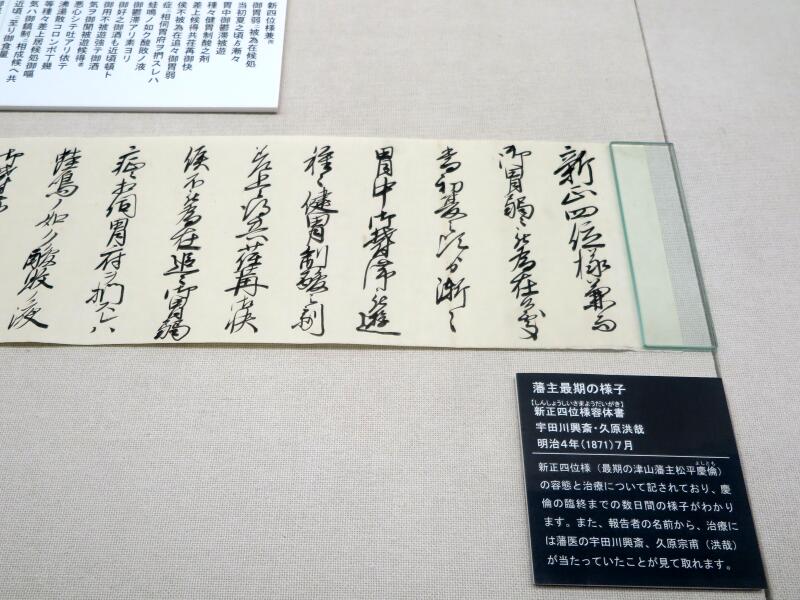 新正四位様兼而
御胃弱ニ被為在候処
当初夏之頃ゟ漸々
胃中御鬱滞被遊
種々健胃制酸之剤
差上候得共荏再御快
候不被為在追々御胃弱
症ニ相伺胃府ヲ捫スレハ
蛙鳴ノ如ク酸敗ノ液
御鬱滞アリ素ヨリ
御好之御酒も近頃頓ト
御用不被遊強テ御酒
気ヲ御聞被遊候得者
悪心シテ吐アリ依テ
沸湯散コロンボ丁幾
等種々差上居候処御嘔
気ハ御鎮制ニ相成候ヘ共
近頃ニ至り御食量
新正四位様兼而
御胃弱ニ被為在候処
当初夏之頃ゟ漸々
胃中御鬱滞被遊
種々健胃制酸之剤
差上候得共荏再御快
候不被為在追々御胃弱
症ニ相伺胃府ヲ捫スレハ
蛙鳴ノ如ク酸敗ノ液
藩主最期の様子
【しんしょうしいさまようだいがき】
新正四位様容体書
宇田川興斎・久原洪哉
明治4年(1871)7月
新正四位様(最期の津山藩主松平慶倫よしとも)
の容態と治療について記されており、慶
倫の臨終までの数日間の様子がわかり
ます。また、報告者の名前から、治療に
は藩医の宇田川興斎、久原宗甫(洪哉)
が当たっていたことが見て取れます。